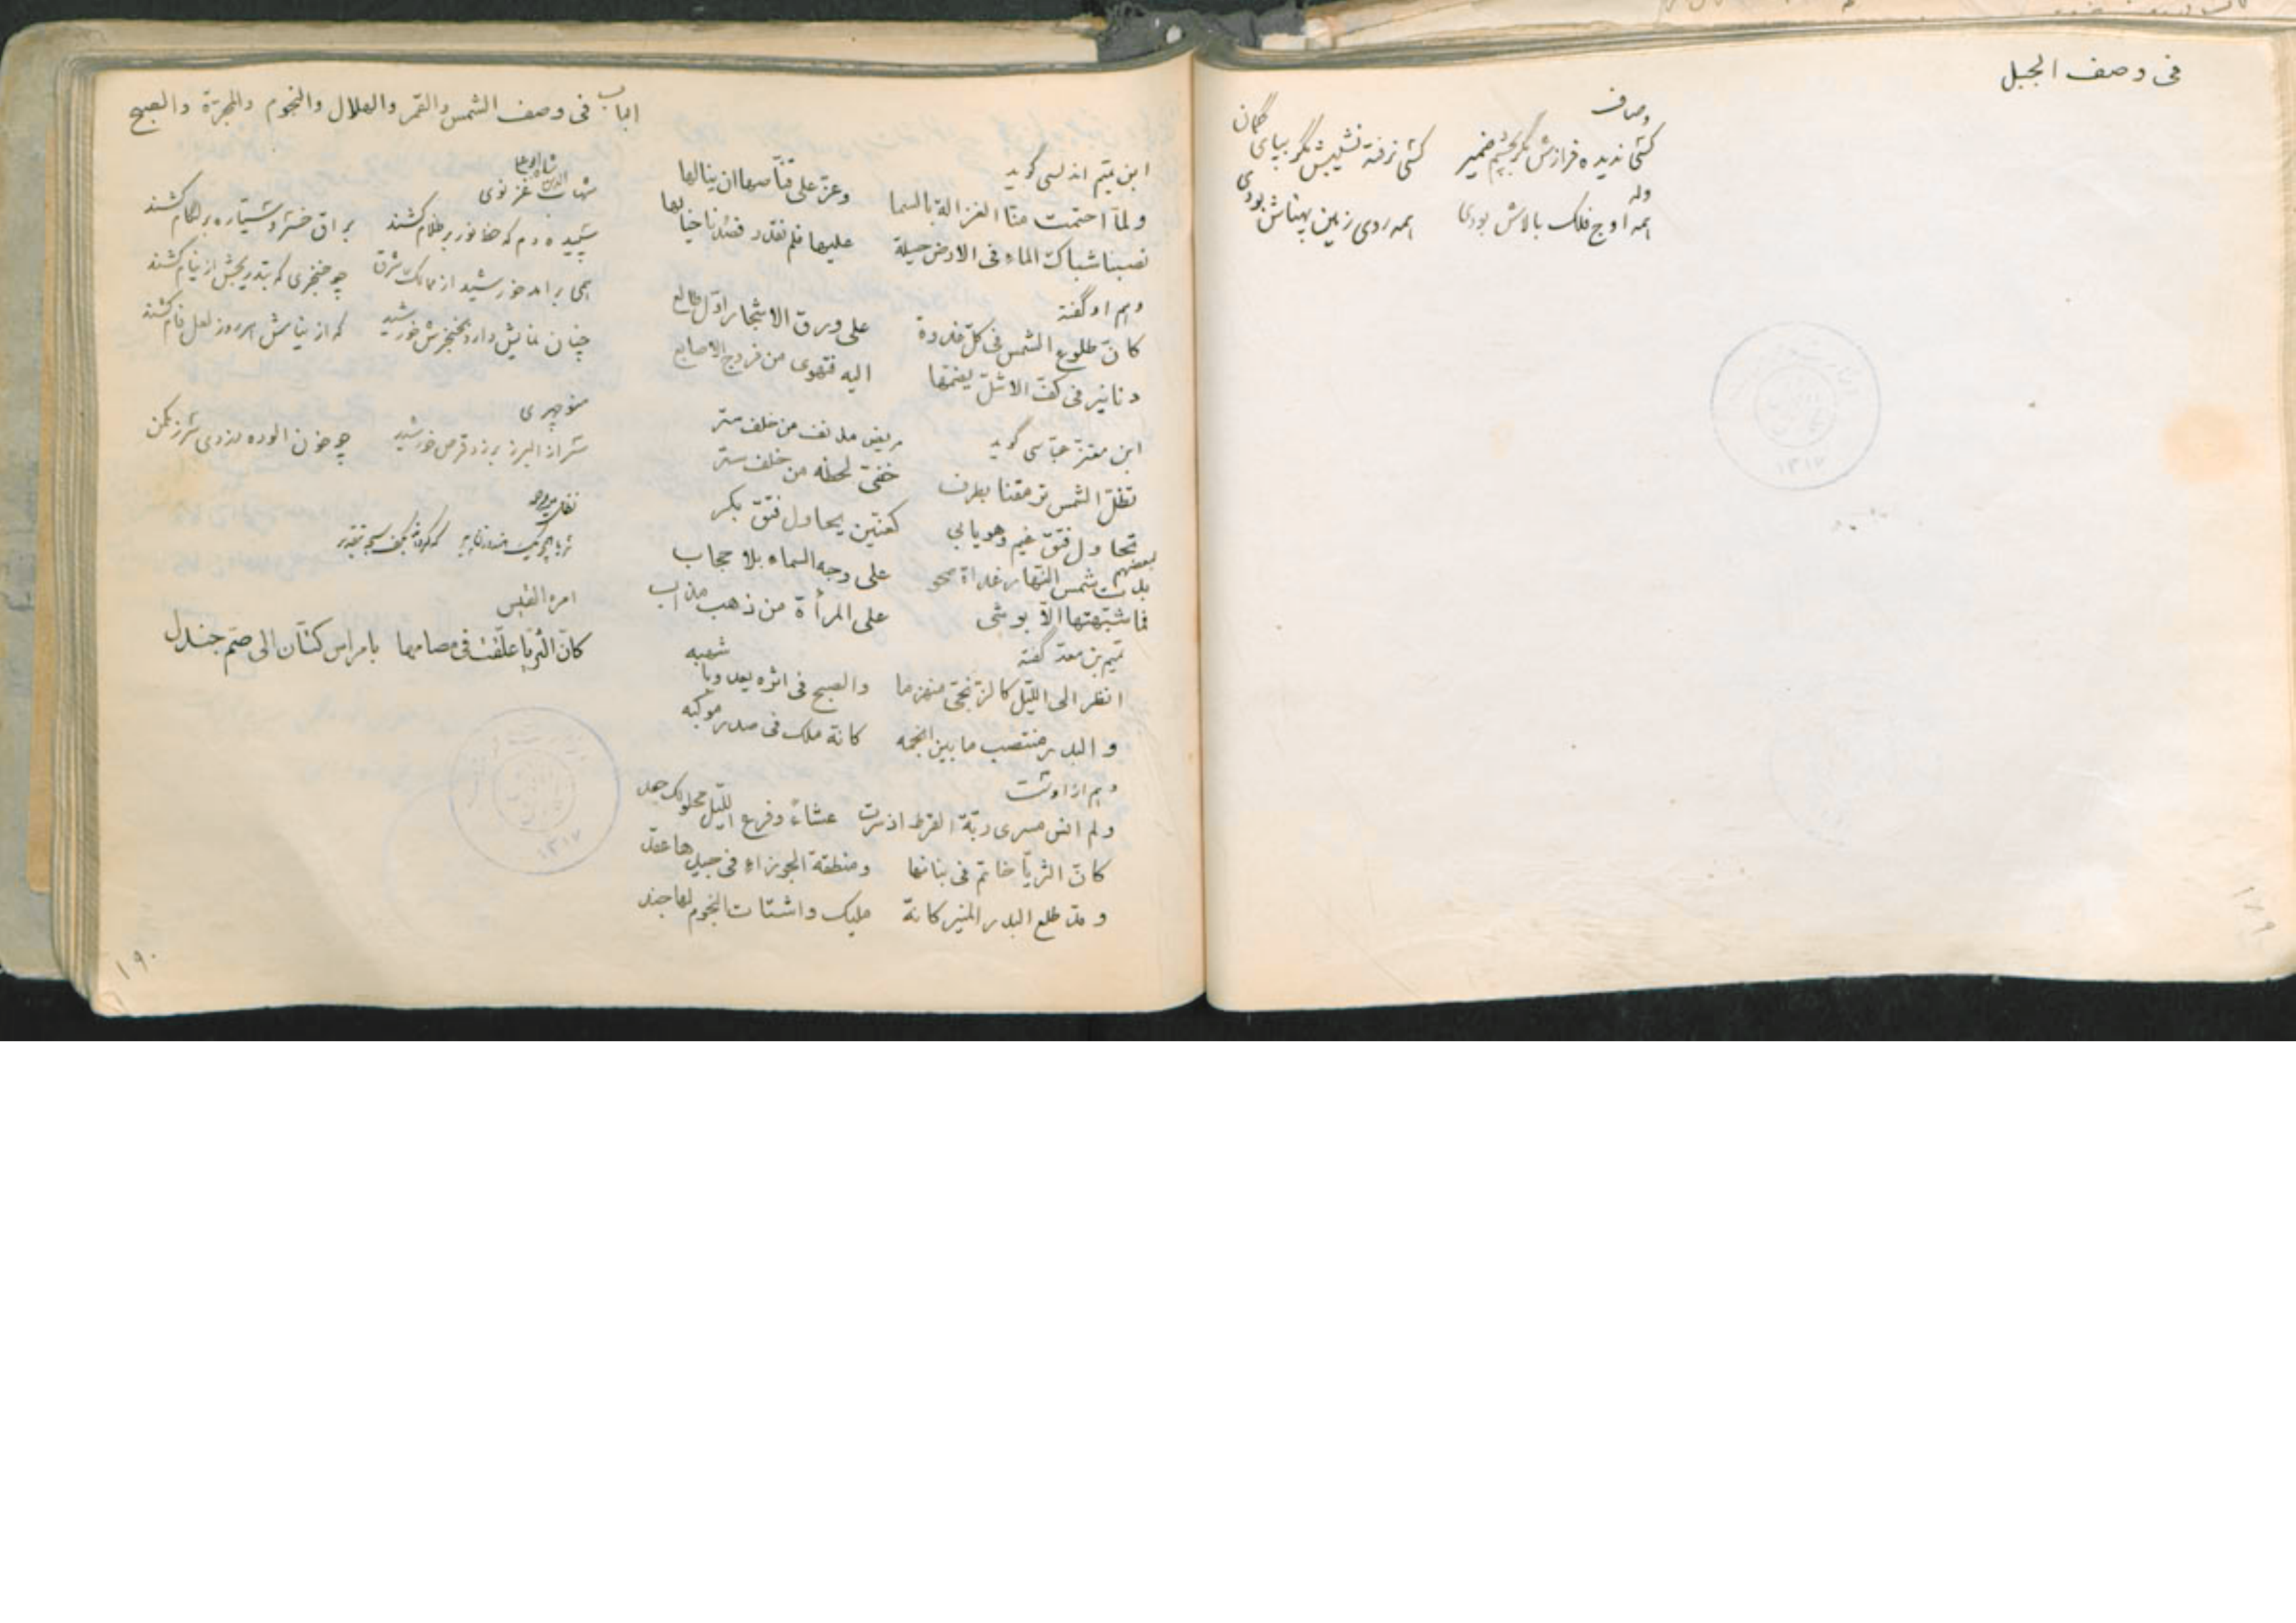 فی وصف الجبل
وصاف
کسی ندیده فرازش مگر بچشم ضمیر کسی نرفته نشیبش مگر بپای گمان
وله
همه اوج فلک بالاش بودی همه روی زمین پهناش بودی
۱۸۹
الباب فی وصف الشمس والقمر والهلال والنجوم والمجرّة والصبح
ابن تمیم اندلسی گوید
ولمّا احتمت منّا الغزالة بالسما وعزّ علی قنّاصها ان ینالها
نصبنا شباک الماء فی الارض حیلة علیها فلم نقدر فصُدنا خیالها
وهم او گفته
کانّ طلوع الشمس فی کلّ غدوة علی ورق الاشجار اوّل طالع
دنانیر فی کفّ الاشلّ یضمّها الیه فتهوی من فروج الاصابع
ابن معتز عبّاسی گوید
تظلّ الشمس ترمقنا بطرف مریض مدنف من خلف ستر
خفیّ لحظه من خلف ستر
تحاول فتق غیم وهو یابی کعنّین یحاول فتق بکر
لبعضهم
بدت شمس النهار غداة صحو علی وجه السماء بلا حجاب
فما شبّهتها الّا بوشی علی المرأة من ذهب مذاب
تمیم بن معدّ گفته
انظر الی اللّیل کالزّنجیّ منهزما والصبح فی اثره یعدو با شهبه
والبدر منتصب ما بین انجمه کانّه ملک فی صدر موکبه
وهم از اوست
ولم انس مسری ربّة القرط اذ سرت عشاءً وفرع اللّیل محلولک جعد
کانّ الثریّا خاتم فی بنانها ومنطقة الجوزاء فی جیدها عقد
وقد طلع البدر المنیر کانّه ملیک واشتات النجوم لها جند
شهاب الدین غزنوی
سپیده دم که ضیا نور بر ظلام کشند براق خسرو سیّاره بر لگام کشند
همی براند خورشید از ممالک شرق چو خنجری که بتدریجش از نیام کشند
چنان نمایش دارد بخنجرش خورشید که از نیامش هر روز لعل فام کشند
منوچهری
سر از البرز بر زد قرص خورشید چو خون آلوده دزدی سر ز مکمن
امرء القیس
کانّ الثریّا علّقت فی مصامها بامراس کتّان الی صمّ جندل
۱۹۰
۱۳۱۷